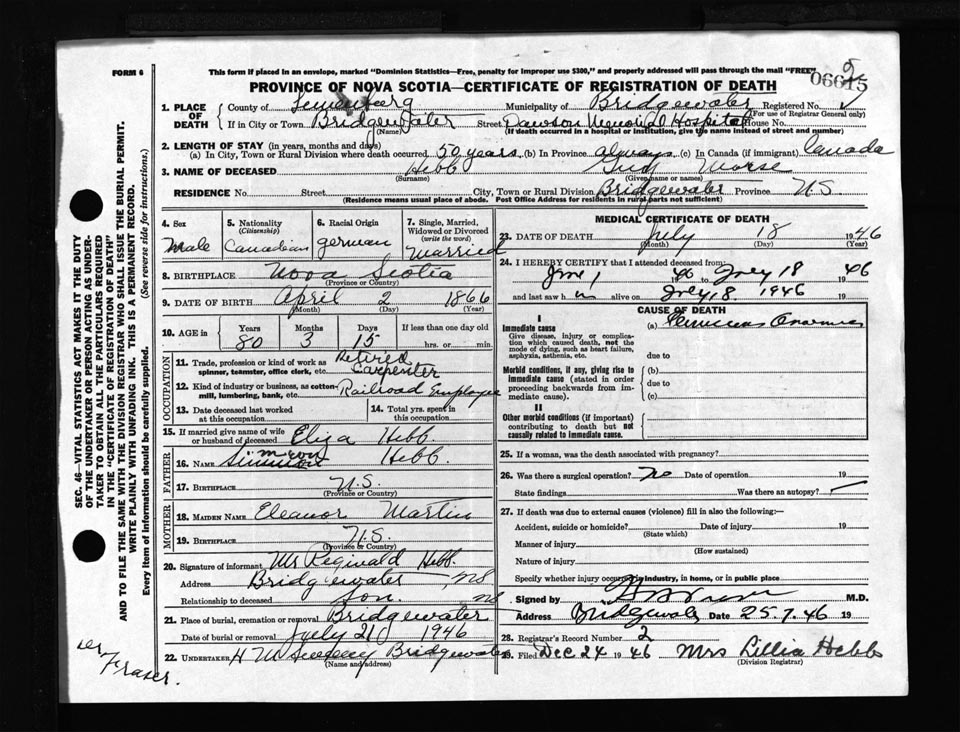 FORM 6
This form if placed in an envelope, marked "Dominion Statistics—Free, penalty for improper use $300," and properly addressed will pass through the mail "FREE"
06615
PROVINCE OF NOVA SCOTIA—CERTIFICATE OF REGISTRATION OF DEATH
1. PLACE OF DEATH
County of Lunenburg Municipality of Bridgewater Registered No.
(For use of Registrar General only)
If in City or Town Bridgewater Street Dawson Memorial Hospital House No.
(Name) (If death occurred in a hospital or institution, give the name instead of street and number)
2. LENGTH OF STAY (in years, months and days)
(a) In City, Town or Rural Division where death occurred 50 years (b) In Province always (c) In Canada (if immigrant) Canada
3. NAME OF DECEASED Hebb Morse
(Surname) (Given name or names)
RESIDENCE No. Street City, Town or Rural Division Bridgewater Province N.S.
(Residence means usual place of abode. Post Office Address for residents in rural parts not sufficient)
4. Sex
Male
5. Nationality
(Citizenship)
Canadian
6. Racial Origin
german
7. Single, Married, Widowed or Divorced
(write the word)
Married
8. BIRTHPLACE Nova Scotia
(Province or Country)
9. DATE OF BIRTH April 2 1866
(Month) (Day) (Year)
10. AGE in
Years Months Days If less than one day old
80 3 15 hrs. or min.
OCCUPATION
11. Trade, profession or kind of work as spinner, teamster, office clerk, etc. Retired Carpenter
12. Kind of industry or business, as cotton-mill, lumbering, bank, etc. Railroad Employee
13. Date deceased last worked at this occupation.
14. Total yrs. spent in this occupation
15. If married give name of wife or husband of deceased Eliza Hebb
FATHER
16. NAME Hebb.
17. BIRTHPLACE N.S.
(Province or Country)
MOTHER
18. MAIDEN NAME Eleanor Martin
19. BIRTHPLACE N.S.
(Province or Country)
20. Signature of informant Mr Reginald Hebb.
Address Bridgewater NS
Relationship to deceased Son. NS
21. Place of burial, cremation or removal Bridgewater
Date of burial or removal July 21 1946
22. UNDERTAKER Bridgewater
(Name and address)
MEDICAL CERTIFICATE OF DEATH
23. DATE OF DEATH July 18 1946
(Month) (Day) (Year)
24. I HEREBY CERTIFY that I attended deceased from:
June 1 1946 to July 18 1946
and last saw h alive on July 18. 1946 19
CAUSE OF DEATH
I
Immediate cause
Give disease, injury or complication which caused death, not the mode of dying, such as heart failure, asphyxia, asthenia, etc.
(a) Pernicious Anaemia
due to
Morbid conditions, if any, giving rise to immediate cause (stated in order proceeding backwards from immediate cause).
(b)
due to
(c)
II
Other morbid conditions (if important) contributing to death but not causally related to immediate cause.
25. If a woman, was the death associated with pregnancy?
26. Was there a surgical operation? no Date of operation 19
State findings Was there an autopsy?
27. If death was due to external causes (violence) fill in also the following:—
Accident, suicide or homicide? Date of injury 19
(State which)
Manner of injury
(How sustained)
Nature of injury
Specify whether injury occurred in industry, in home, or in public place
Signed by M.D.
Address Bridgewater Date 25.7.46 19
28. Registrar's Record Number 2
29. Filed Dec 24 1946 Mrs Lillia Hebb
(Division Registrar)
SEC. 46—VITAL STATISTICS ACT MAKES IT THE DUTY
OF THE UNDERTAKER OR PERSON ACTING AS UNDER-
TAKER TO OBTAIN ALL THE PARTICULARS REQUIRED
IN THE "CERTIFICATE OF REGISTRATION OF DEATH"
AND TO FILE THE SAME WITH THE DIVISION REGISTRAR WHO SHALL ISSUE THE BURIAL PERMIT.
WRITE PLAINLY WITH UNFADING INK. THIS IS A PERMANENT RECORD.
Every item of information should be carefully supplied. (See reverse side for instructions.)
Fraser.